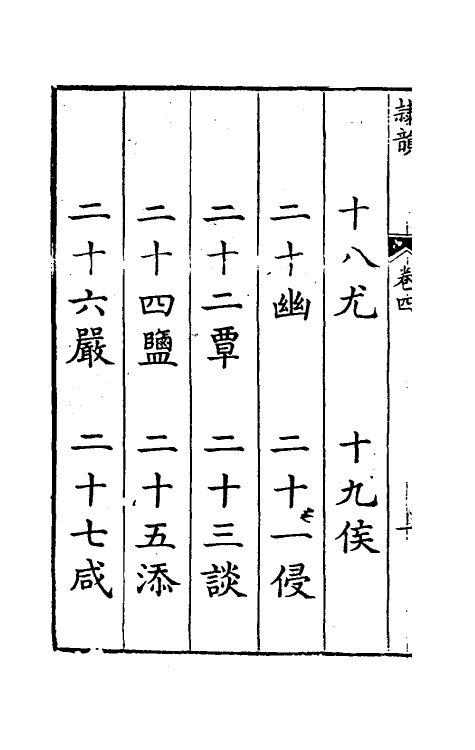 隷韻
卷四
十八尤 十九侯
二十幽 二十一侵
二十二覃 二十三談
二十四鹽 二十五添
二十六嚴 二十七咸